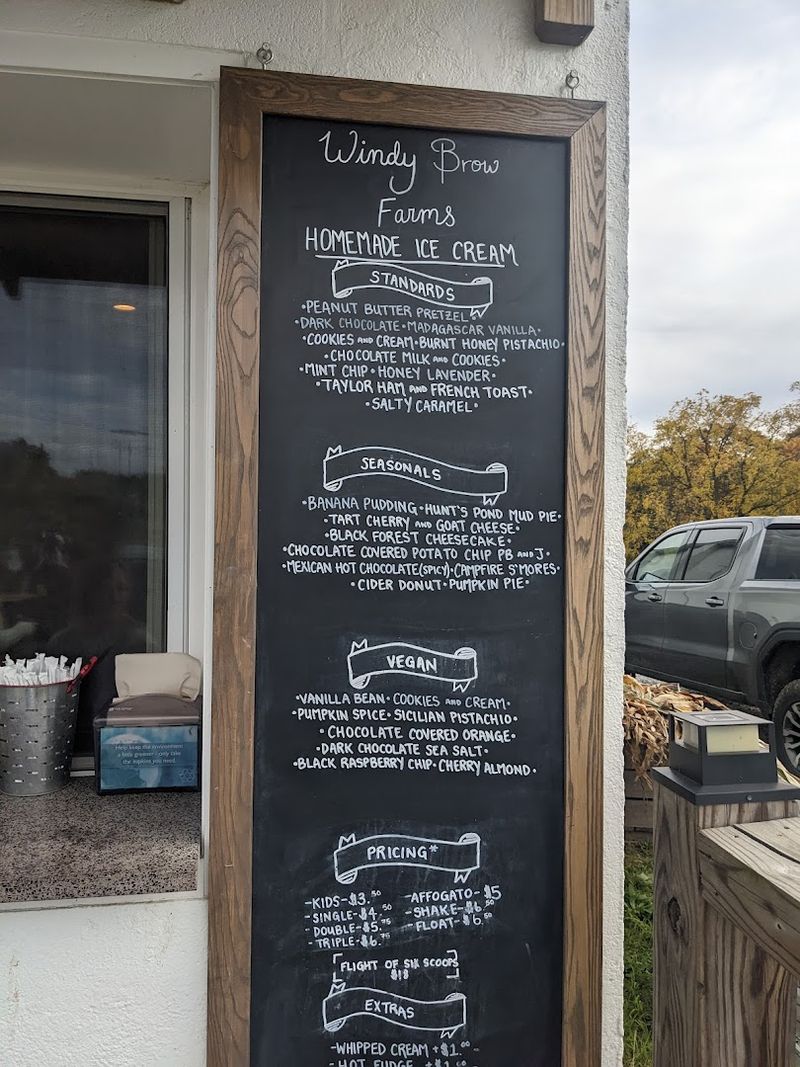 Windy Brow
Farms
HOMEMADE ICE CREAM
STANDARDS
•PEANUT BUTTER PRETZEL•
•DARK CHOCOLATE•MADAGASCAR VANILLA•
•COOKIES AND CREAM•BURNT HONEY PISTACHIO•
•CHOCOLATE MILK AND COOKIES•
•MINT CHIP•HONEY LAVENDER•
•TAYLOR HAM AND FRENCH TOAST•
•SALTY CARAMEL•
SEASONALS
•BANANA PUDDING•HUNT'S POND MUD PIE•
•TART CHERRY AND GOAT CHEESE•
•BLACK FOREST CHEESECAKE•
•CHOCOLATE COVERED POTATO CHIP PB AND J•
•MEXICAN HOT CHOCOLATE(SPICY)•CAMPFIRE S'MORES•
•CIDER DONUT•PUMPKIN PIE•
VEGAN
•VANILLA BEAN•COOKIES AND CREAM•
•PUMPKIN SPICE•SICILIAN PISTACHIO•
•CHOCOLATE COVERED ORANGE•
•DARK CHOCOLATE SEA SALT•
•BLACK RASPBERRY CHIP•CHERRY ALMOND•
PRICING*
-KIDS-$3.50 -AFFOGATO-$5
-SINGLE-$4.50 -SHAKE-$6.50
-DOUBLE-$5.75 -FLOAT-$6.50
-TRIPLE-$6.75
FLIGHT OF SIX SCOOPS
$18
EXTRAS
-WHIPPED CREAM +$1.00
-HOT FUDGE +$1.00
Help keep the environment
a little greener - only take
the napkins you need.